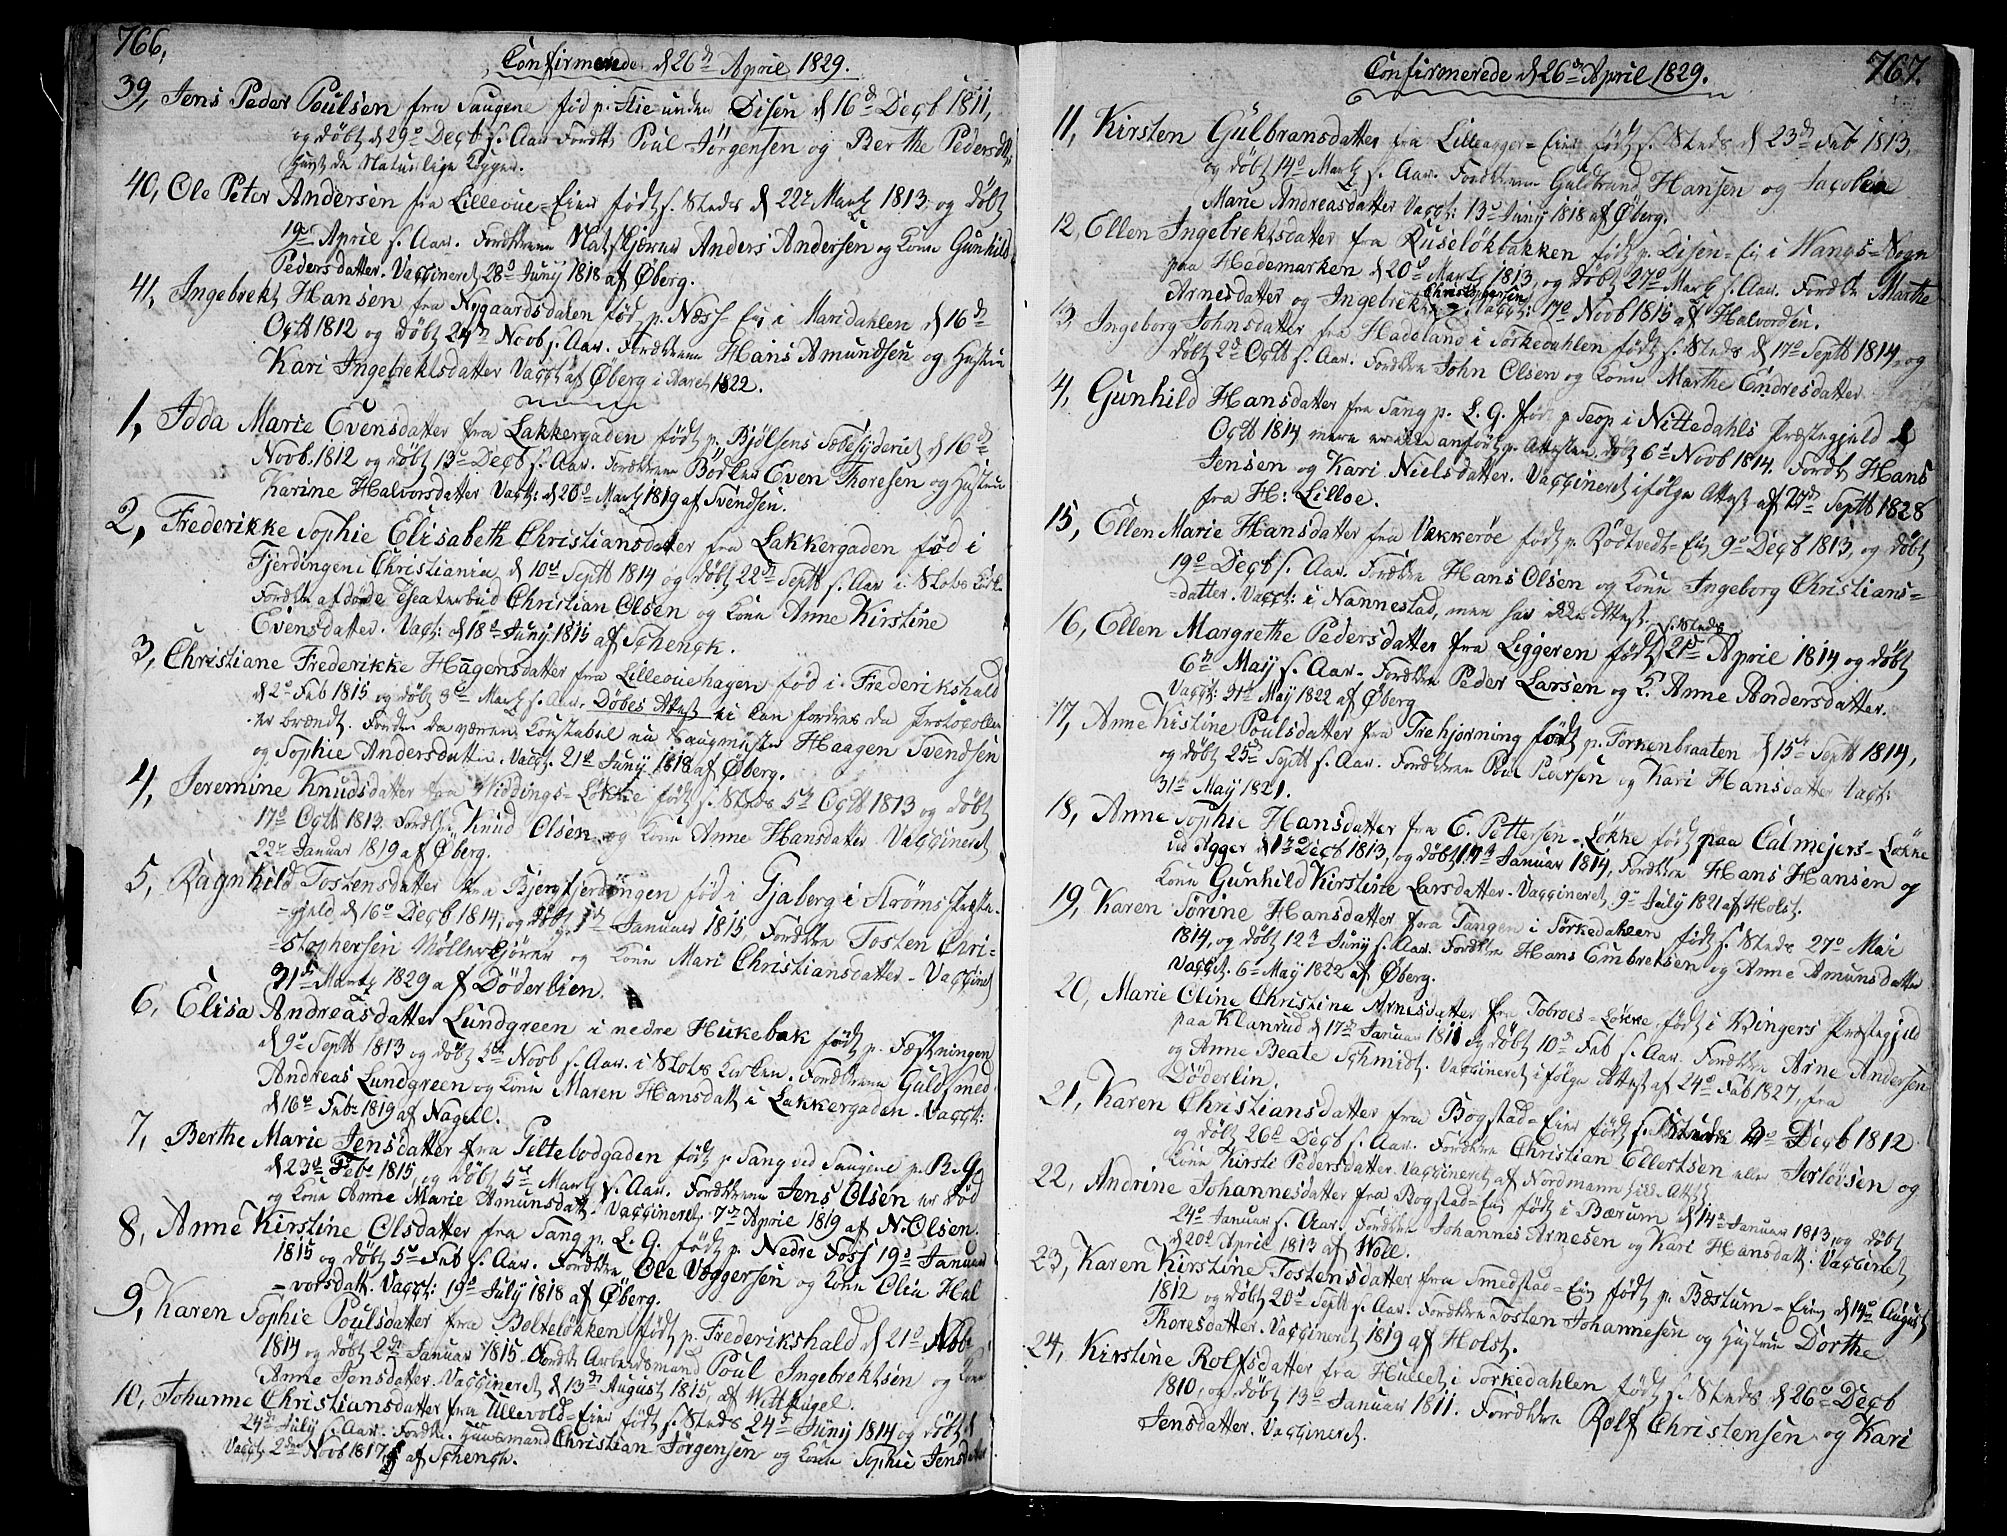 766.
Confirmerede d 26de April 1829.
39, Jens Peder Poulsen fra Saugene fød p. Stie under Disen d 16d Decb 1811,
og døbt d 29d Decb s. Aar Forældre Poul Jörgensen og Berthe Pedersdtt
Naturlige
40, Ole Peter Andersen fra Lilleoue=Eier født s. Steds d 22d Martz 1813 og døbt
19d April s. Aar. Forældrene Anders Andersen og Kone Gunhild
Pedersdatter. Vaccineret 28d Junij 1818 af Øberg.
41, Ingebrekt Hansen fra Nygaardsdalen fød p. Næss=Eie i Maridahlen d 16d
Octb 1812 og døbt 24d Novb s. Aar. Forældrene Hans Amundsen og Hustru
Kari Ingebrektsdatter Vacct af Øberg i Aaret 1822.
1, Idda Marie Evensdatter fra Lakkergaden født p. Bjølsens d 16d
Novb. 1812 og døbt 13d Decb s. Aar. Forældrene Bödker Even Thoresen og Hustru
Karine Halvorsdatter Vacct: d 26d Martz 1819 af Svendsen.
2, Frederikke Sophie Elisabeth Christiansdatter fra Lakkergaden fød i
Fjerdingen i Christiania d 10d Septb 1814 og døbt 22d Septb s. Aar i Slots Kirk.
Forældre afdøde Theaterbud Christian Olsen og Kone Anne Kirstine
Evensdatter. Vacct: d 18d Junij 1815 af Schenck.
3, Christiane Frederikke Hagensdatter fra Lilleouehagen fød i Frederikshald
d 2d Feb 1815 og døbt 3d Martz s. Aar. Døbes Attest ei kan fordres da Protocollen
er brændt. Forældre Constabel nu Haagen Svendsen
og Sophie Andersdatter. Vacct. 21d Junij 1818 af Øberg.
4, Jeremine Knudsdatter fra Widdings=Løkke født s. Steds 5d Octb 1813 og døbt
17d Octb 1813. Forældre Knud Olsen og Kone Anne Hansdatter. Vaccineret
22d Januar 1819 af Øberg.
5, Ragnhild Tostensdatter fra Bjergfjerdingen fød i Gjaberg i Strøms Præste=
=gjeld d 16d Decb 1814, og døbt 1d Januar 1815 Forældre Tosten Chri=
=stophersen og Kone Mari Christiansdatter. Vaccinet
31d Martz 1829 af Döderlien.
6, Elisa Andreasdatter Lundgreen i nedre Hukebak født p. Fæstningen
d 9d Septb 1813 og døbt 5d Novb s. Aar. i Slots Kirken. Forældrene Guldsmed
Andreas Lundgreen og Kone Maren Hansdatt i Lakkergaden. Vacct:
d 16d Febr 1819 af Nagell.
7, Berthe Marie Jensdatter fra Peltebodgaden født p. Sang ved Saugene p. B. G.
d 23d Febr 1815, og døbt 5d Martz s. Aar. Forældrene Jens Olsen er død
og Kone Anne Marie Amundsdatt. Vaccineret. 7d April 1819 af N. Olsen.
8, Anne Kirstine Olsdatter fra Sang p. L. G. født p. Nedre Foss 19d Januar
1815 og døbt 5d Feb s. Aar. Forældre Ole Væggersen og Kone Olia Hal
=vorsdatt. Vacct: 19d July 1818 af Øberg.
9, Karen Sophie Poulsdatter fra Bolteløkken født p. Frederikshald d 21d Novb.
1814 og døbt 2d Januar 1815. Forældre Arbeidsmand Poul Ingebrektsen og Kone
Anne Jensdatter. Vaccineret d 13d August 1815 af Wittkugel.
10, Johanne Christiansdatter fra Ullevold=Eier født s. Steds 24d Junij 1814 og døbt
24d July s. Aar. Forældre. Huusmand Christian Jörgensen og Kone Sophie Jensdatter
Vacct 2d Novb 1817 af Schenck.
767.
Confirmerede d 26de April 1829.
11, Kirsten Gulbransdatter fra Lilleagger=Eier født s. Steds d 23d Feb 1813,
og døbt 14d Martz s. Aar. Forældrene Guldbrand Hansen og Jacobia
Marie Andreasdatter Vacct: 13d Junij 1818 af Øberg.
12, Ellen Ingebrektsdatter fra Ruseløkbakken født p. Disen=Eie i Wangs=Sogn
paa Hedemarken d 20d Martz 1813, og døbt 27d Martz s. Aar. Forældre Marthe
Arnesdatter og Ingebrekt Christophersen. Vacct: 17d Novb 1815 af Halvorsen.
13, Ingeborg Johnsdatter fra Hadeland i Sörkedahlen født s. Steds d 17d Septb 1814, og
døbt 2d Octb s. Aar. Forældre John Olsen og Kone Marthe Endresdatter
4, Gunhild Hansdatter fra Sang p. L. G. fød p. Scop i Nittedahls Præstegjeld d
Octb 1814 mere er ikke anført p. Attesten. døbt 6d Novb 1814. Forældre Hans
Jensen og Kari Nielsdatter. Vaccineret ifølge Attest af Septb 1828
fra H: Lilloe.
15, Ellen Marie Hansdatter fra Vækkerøe født p. Rødtvedt=Eie 9d Decb 1813, og døbt
19d Decb s. Aar. Forældre Hans Olsen og Kone Ingeborg Christians=
=datter. Vacct: i Nannestad, men har ikke Attest.
16, Ellen Margrethe Pedersdatter fra Liggeren født s. Steds 21d April 1814 og døbt
6d Maij s. Aar. Forældre Peder Larsen og K. Anne Andersdatter.
Vacct: 31d May 1822 af Øberg
17, Anne Kistine Poulsdatter fra Trehjørning født p. Torkenbraaten d 15d Septb 1814,
og døbt 25d Septb s. Aar. Forældrene Poul Pedersen og Kari Hansdatter Vacct:
31d May 1821.
18, Anne Sophie Hansdatter fra E. Pettersen=Løkke født paa Calmejers=Løkke
ved Agger d 17d Decb 1813, og døbt 14d Januar 1814, Forældre Hans Hansen og
Kone Gunhild Kirstine Larsdatter. Vaccineret, 9d July 1821 af Holst.
19, Karen Sörine Hansdatter fra Tangen i Sörkedahlen født s. Steds 27d Mai
1814, og døbt 12d Junij s. Aar. Forældre Hans Embretsen og Anne Amunsdatter
Vacct. 6d May 1822 af Øberg.
20, Marie Oline Christine Arnesdatter fra Tobroes=Løkke, født i Wingers Præstegjeld
paa Klanrud d 17d Januar 1811 og døbt 10d Feb s. Aar. Forældre Arne Andersen
og Anne Beate Schmidt. Vaccineret ifølge Attest af 24d Feb 1827, fra
Döderlin.
21, Karen Christiansdatter fra Bogstad=Eier født s. Steds Decb 1812
og døbt 26d Decb s. Aar. Forældre Christian Ellertsen eller og
Kone Kirsti Pedersdatter. Vaccineret af Nordmann Attest
22, Andrine Johannesdatter fra Bogstad=Eie født i Bærum d 14d Januar 1813, og døbt
24d Januar s. Aar. Forældre Johannes Arnesen og Kari Hansdatt: Vaccinet
d 20d April 1813 af Woll.
23, Karen Kirstine Tostensdatter fra Smedstad=Eie født p. Bæstum=Eie, d 14d August
1812 og døbt 20d Septb s. Aar. Forældre Tosten Johannesen og Hustrue Dorthe
Thoresdatter. Vaccineret 1819 af Holst.
24, Kirstine Rolfsdatter fra Hullet i Sorkedahlen født s. Steds d 26d Decb
1810, og døbt 13d Januar 1811. Forældre Rolf Christensen og Kari
Jensdatter. Vaccineret.